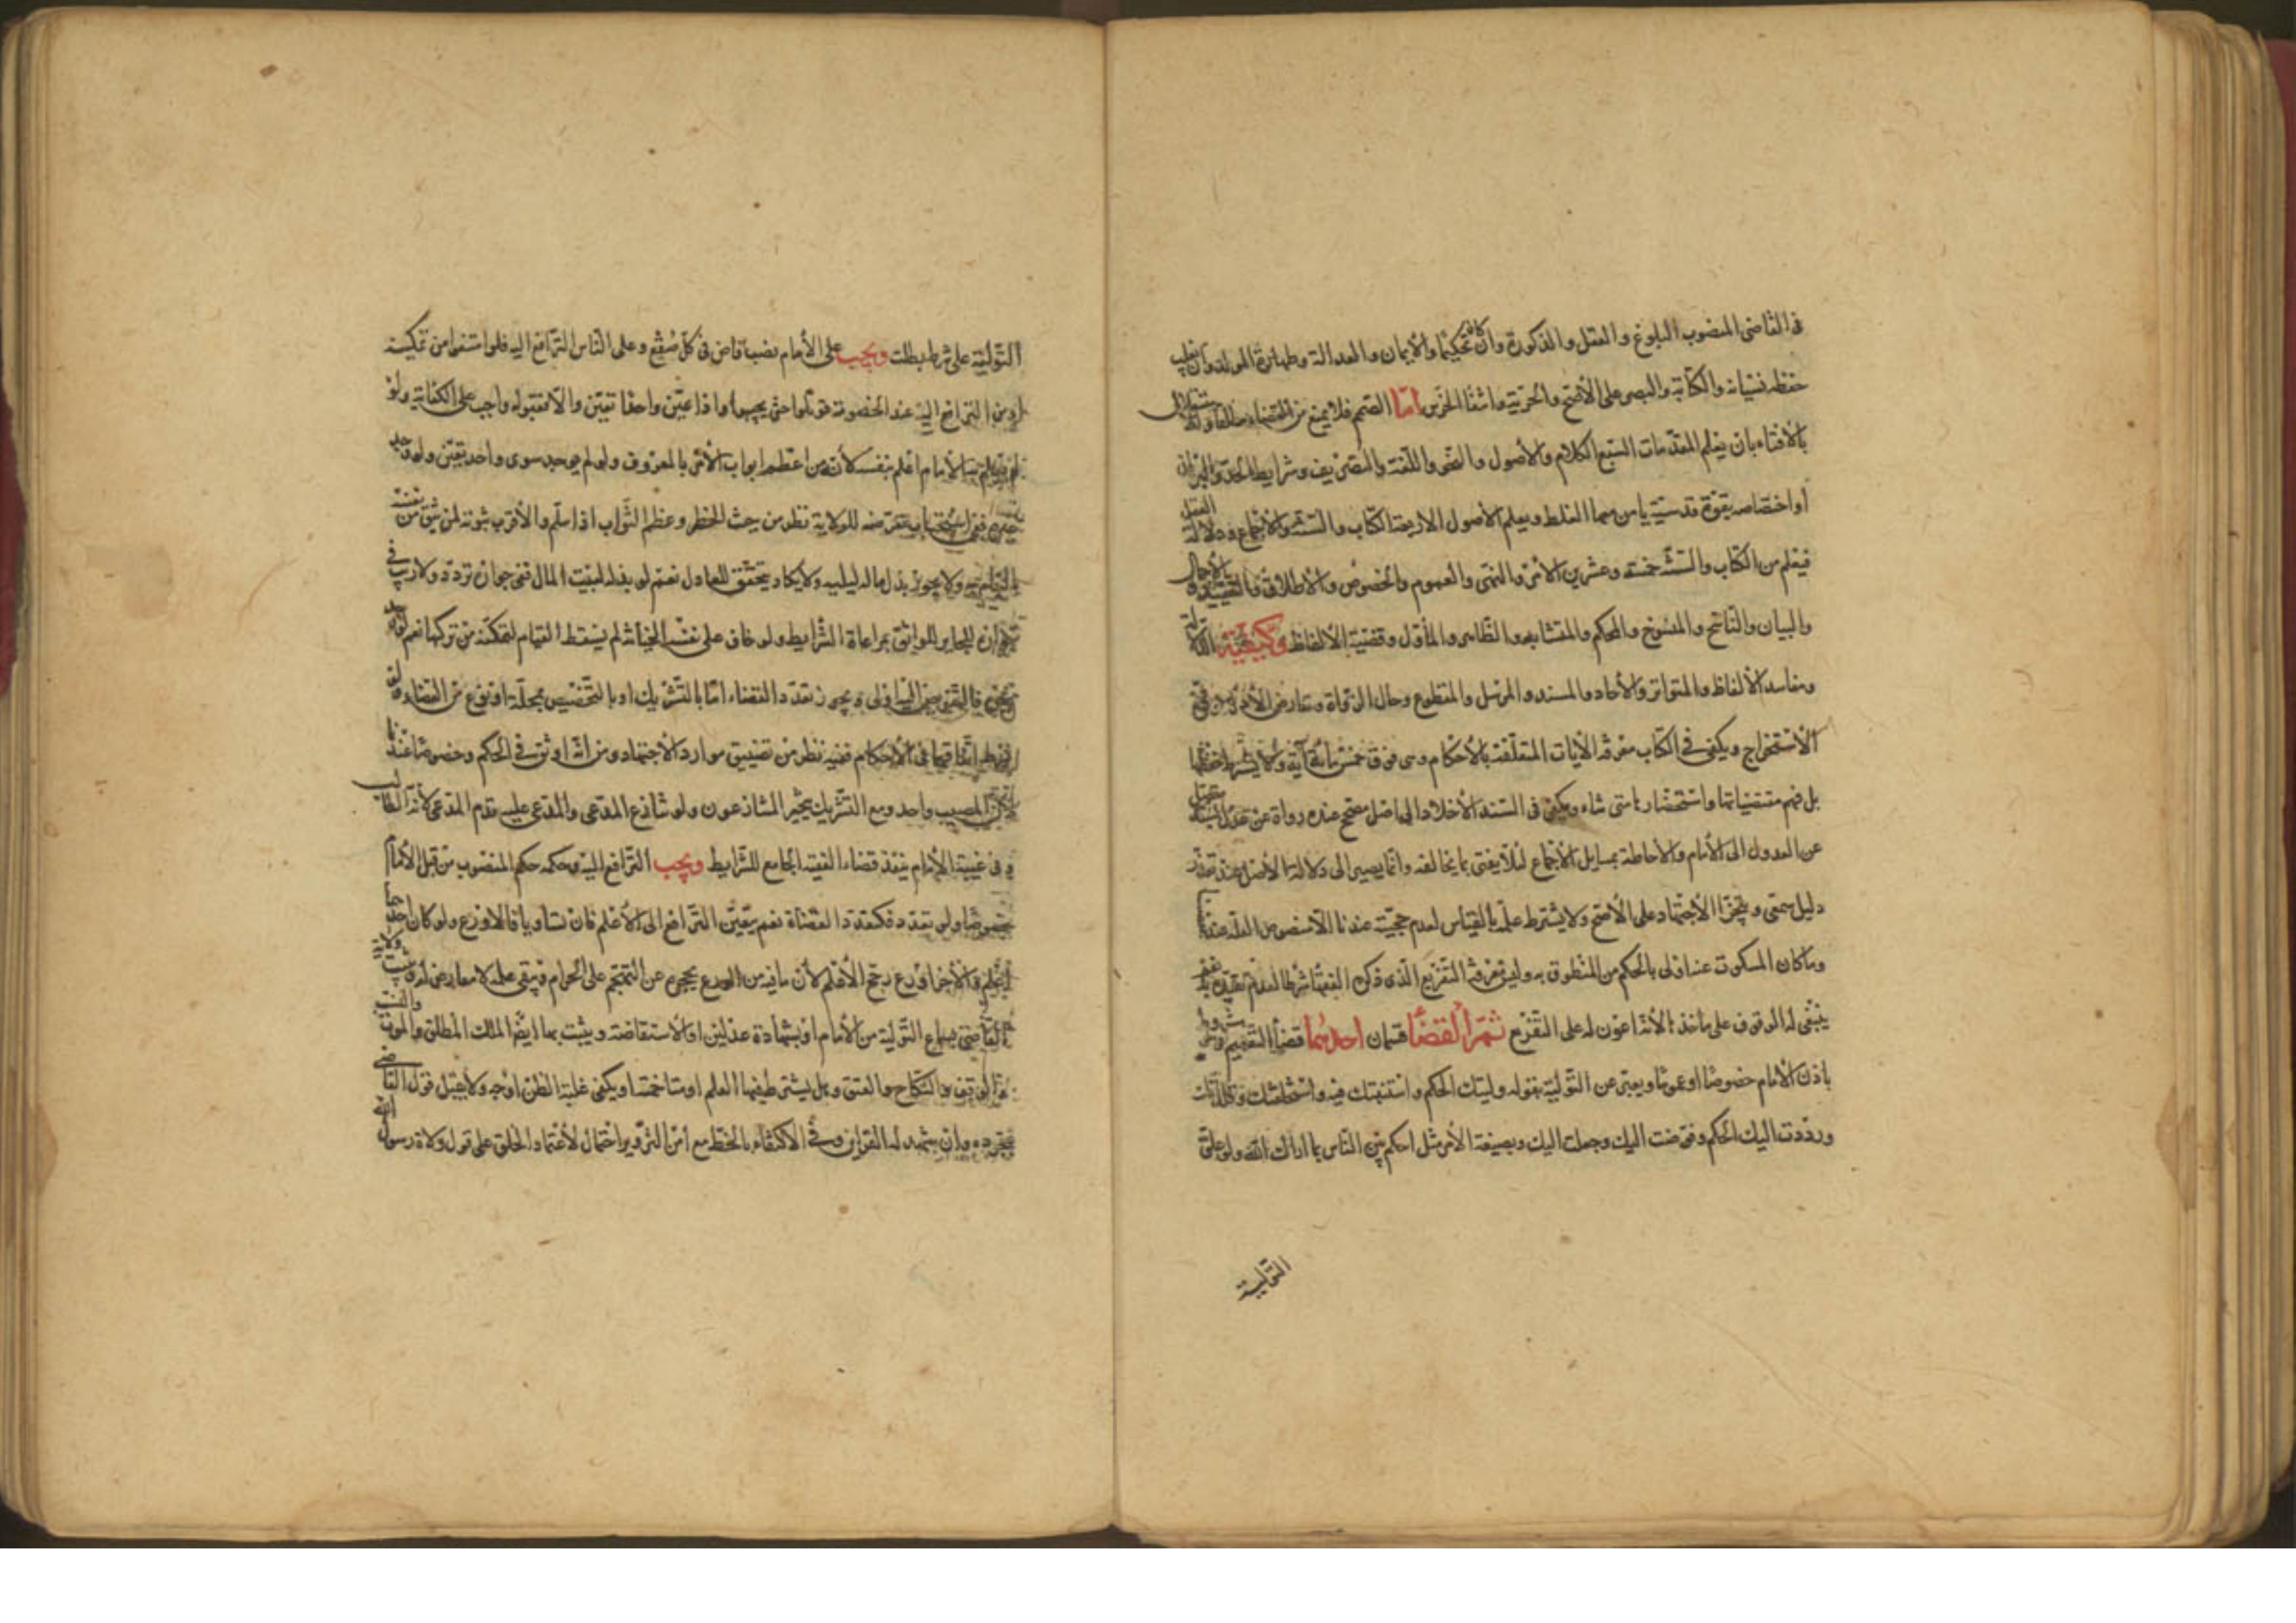 فى القاضى المنصوب البلوغ والعقل والذكورة وان كان تحكيما والأيمان والعدالة وطهارة المولد وان يغلب
حفظه نسيانه والكتابة والبصر على الأصح والحرية وانتفا الخرس امّا الصمم فلا يمنع من القضاء مطلقا واستقلاله
بالافتاء بان يعلم المقدمات الستّ الكلام والأصول والنحو واللغة والتصريف وشرايط الحد والبرهان
أو اختصاصه بقوة قدسية يأمن معها الغلط ويعلم الأصول الاربعة الكتاب والسنّة والاجماع ودلالة العقل
فيعلم من الكتاب والسنّة خمسة وعشرين الأمر والنهى والعموم والخصوص والأطلاق والتقييد والاجمال
والبيان والناسخ والمنسوخ والمحكم والمتشابه والظاهر والمأول وقضية الألفاظ وكيفية الدلالة
ومفاسد الألفاظ والمتواتر والأحاد والمسند والمرسل والمقطوع وحال الرواة وتعارض الأدلة وقوة
الأستخراج ويكفى فى الكتاب معرفة الآيات المتعلّقة بالأحكام وهى فوق خمس مائة آية ولا يشترط حفظها
بل فهم مقتضياتها واستحضارها متى شاء ويكفى فى السنة الأخلاد الى اصل مصحح عنده رواة عن عدل بسند متصل
عن العدول الى الأمام والاحاطة بمسايل الأجماع لئلا يفتى بما يخالفه وانّما يصير الى دلالة الأصل عند تعذر
دليل سمعى ويتجزّا الاجتهاد على الأصح ولا يشترط علمه بالقياس لعدم حجيّته عندنا الا منصوص العلة عندنا
وما كان المسكوت عنه اولى بالحكم من المنطوق به وليس معرفة التفريع الذى ذكره الفقهاء شرطا لعدم تقييده به نعم
ينبغى له الوقوف على مآخذه لأنّه اعون له على التفرّع ثمّر القضأ قسمان احدهما قضأ التعميم وهو مشروط
باذن الامام خصوصا او عموما ويعبّر عن التولية بقوله وليتك الحكم واستنبتك فيه واستخلفتك وقلدتك
ورددت اليك الحكم وفوّضت اليك وجعلت اليك وبصيغة الأمر مثل احكم بين النّاس بما اراك الله ولو علق
التولية
التّولية على شرط بطلت ويجب على الأمام نصب قاض فى كلّ صُقع وعلى النّاس الترافع اليه فلو امتنعوا من تمكينه
او من الترافع اليه عند الخصومة قوتلوا حتى يجيبوا واذا عيّن واحدا تعيّن والّا فقبوله واجب على الكفاية ولو
لم يعلم به الأمام اعلم بنفسه لأنّه من اعظم ابواب الأمر بالمعروف ولو لم يوجد سوى واحد تعيّن ولو وجد
غيره ففى استحباب تعرّضه للولاية نظر من حيث الخطر وعظم الثّواب اذا سلم والأقرب ثبوته لمن يثق من نفسه
بالقيام به ولا يجوز بذل مال ليليه ولا يكاد يتحقّق للعادل نعم لو بذله لبيت المال ففى جوازه تردّد ولا ريب فى
جوازه للجاير للواثق بمراعاة الشّرايط ولو خاف على نفسه الخيانة لم يسقط القيام لتمكّنه من تركها نعم لو وجد
ويجوز تعدّد القضاء امّا بالتّشريك او بالتخصيص بمحلّة او نوع من القضاء ولو
شرط اتّفاقهما فى الأحكام ففيه نظر من تضييق موارد الاجتهاد ومن انّه اوثق فى الحكم وخصوصا عندنا
لأنّ المصيب واحد ومع التّشريك يتخيّر المتنازعون ولو تنازع المدعى والمدعى عليه قدم المدعى لأنّه الطالب
و فى غيبة الأمام ينفذ قضاء الفقيه الجامع للشّرايط ويجب الترافع اليه وحكمه حكم المنصوب من قبل الأمام
خصوصا ولو تعدّد فكتعدّد القضاة نعم يتعيّن الترافع الى الأعلم فان تساويا فالاورع ولو كان احدهما
اعلم والأخر اورع رجّح الأعلم لأن ما فيه من الورع يحجزه عن التهجّم على الحرام فيبقى علمه لا معارض له وتثبت ولاية
القاضى بسماع التّولية من الأمام او بشهادة عدلين او الأستفاضة ويثبت بها ايضا الملك المطلق والموت والنسب
والوقف والنكاح والعتق وهل يشترط فيها العلم او متاخمته او يكفى غلبة الظن اوجه ولا يقبل قول القاضى
بمجرده وان شهد له القراين وفى الاكتفاء بالخط مع امن التزوير احتمال لأعتماد الخلق على قول ولاة رسول الله